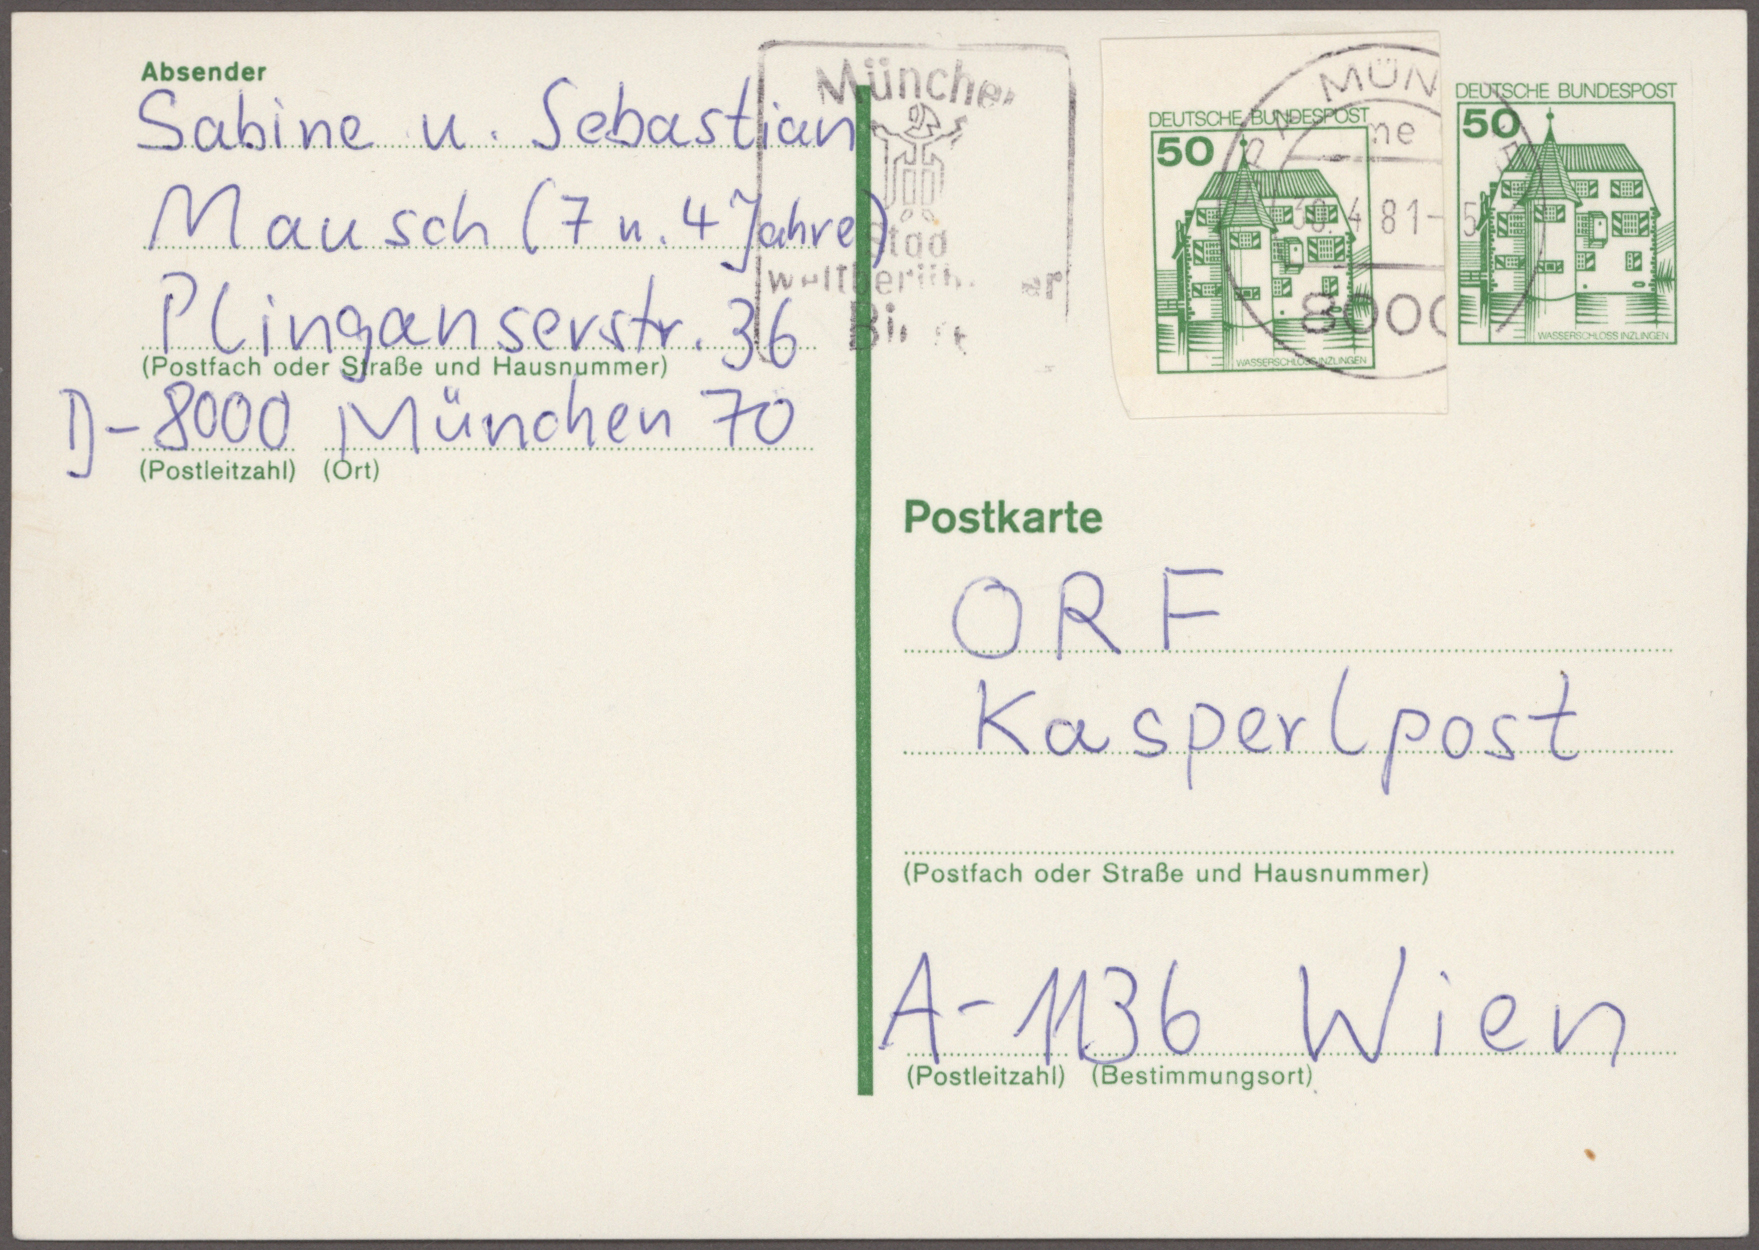 Absender
Sabine u. Sebastian
Mausch (7 u. 4 Jahre)
Plinganserstr. 36
(Postfach oder Straße und Hausnummer)
D-8000 München 70
(Postleitzahl) (Ort)
München
DEUTSCHE BUNDESPOST
50
WASSERSCHLOSS INZLINGEN
DEUTSCHE BUNDESPOST
50
WASSERSCHLOSS INZLINGEN
MÜN
4 81-5
8000
Postkarte
ORF
Kasperlpost
(Postfach oder Straße und Hausnummer)
A-1136 Wien
(Postleitzahl) (Bestimmungsort)